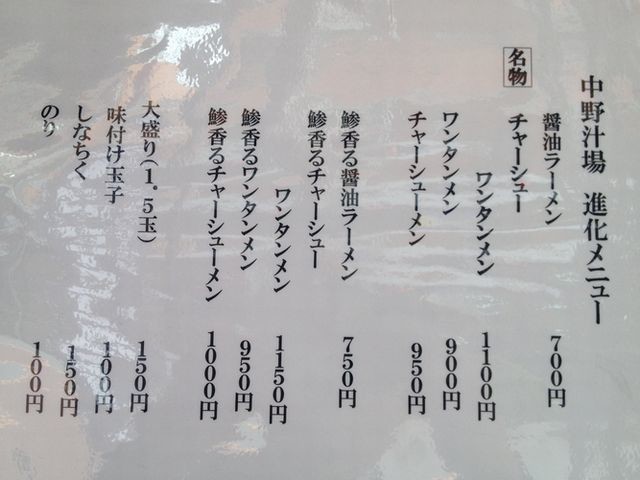 中野汁場 進化メニュー
醤油ラーメン 700円
名物
チャーシュー
ワンタンメン 1100円
ワンタンメン 900円
チャーシューメン 950円
鯵香る醤油ラーメン 750円
鯵香るチャーシュー
ワンタンメン 1150円
鯵香るワンタンメン 950円
鯵香るチャーシューメン 1000円
大盛り(1。5玉) 150円
味付け玉子 100円
しなちく 150円
のり 100円